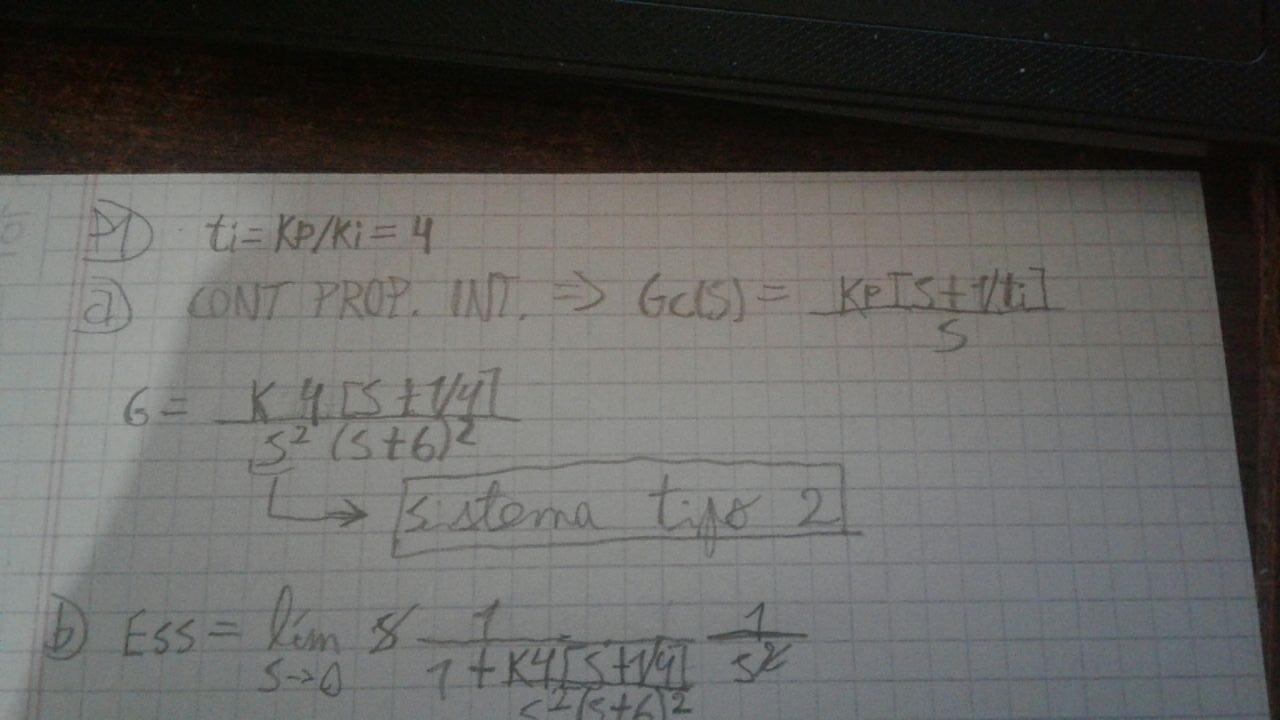 P1) ti = Kp/Ki = 4
a) CONT PROP. INT. => Gc(S) = Kp[S+1/ti] / S
G = K 4 [S+1/4] / S² (S+6)²
↳ sistema tipo 2
b) Ess = lím S→0 S 1 / (1 + K4[S+1/4] / S²(S+6)²) 1/S²